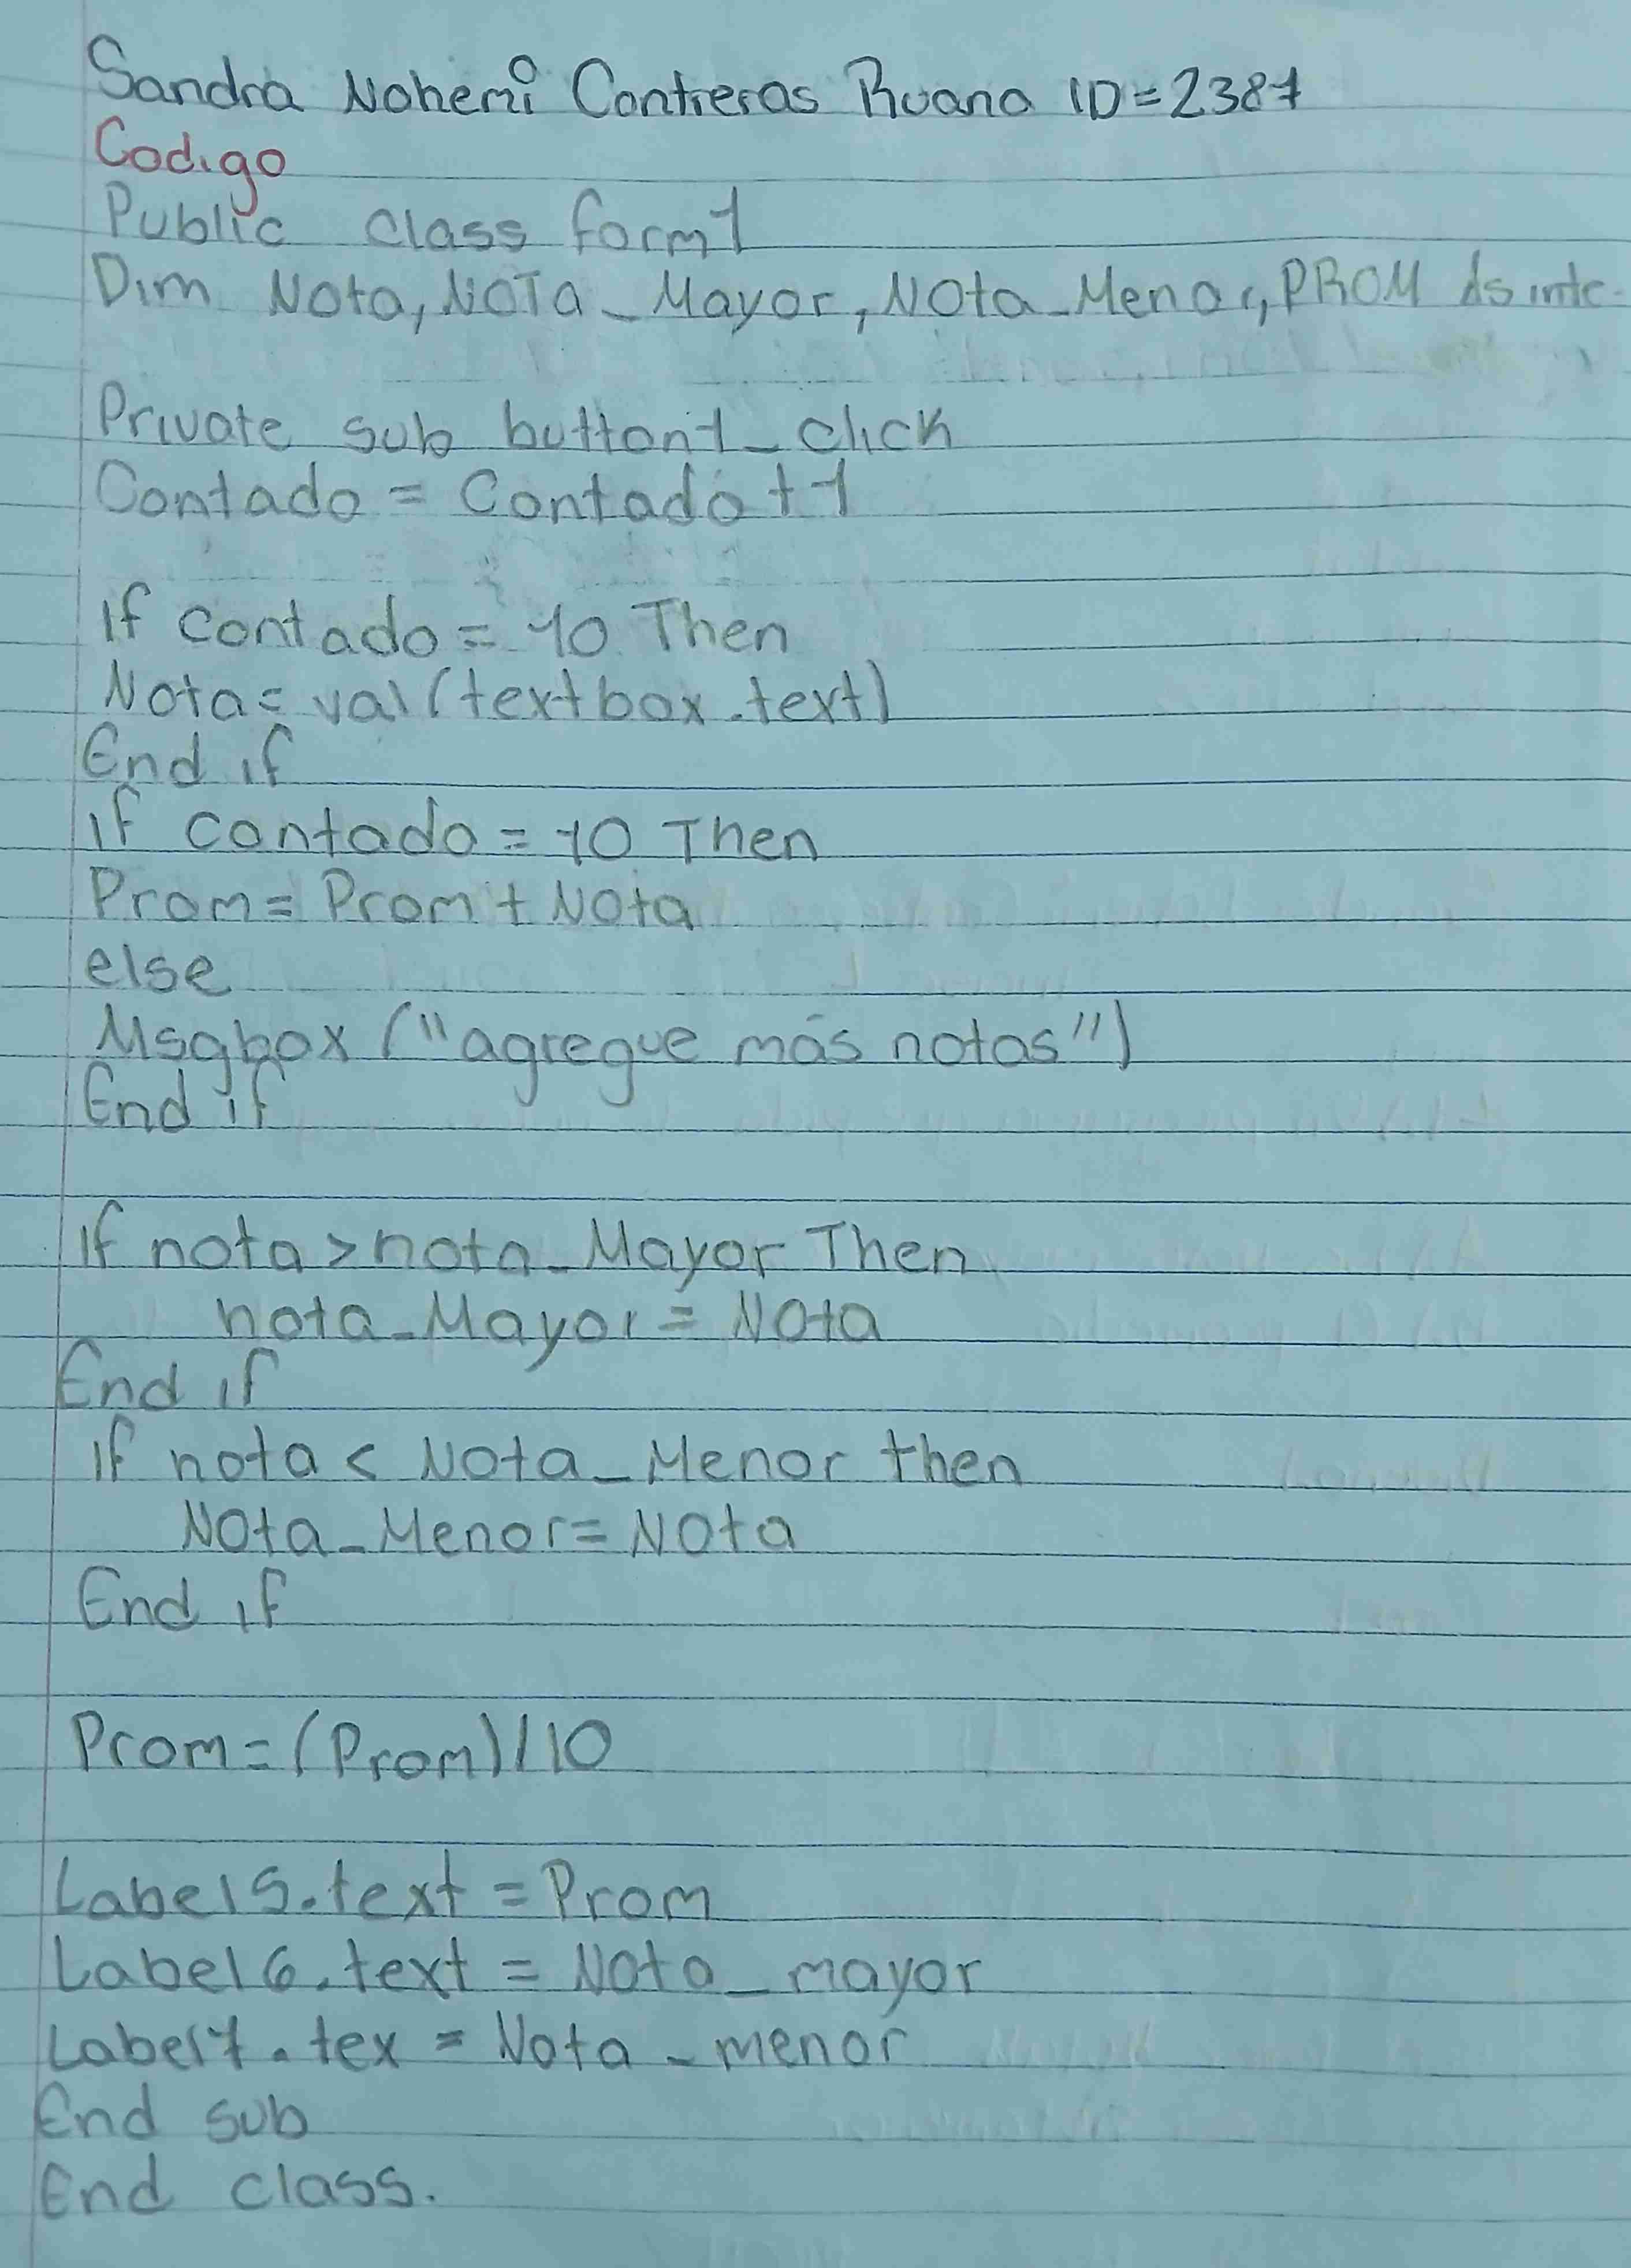 Sandra Nohemí Contreras Ruano ID=2387
Codigo
Public class form1
Dim Nota, NOTa_Mayor, NOta_Menor, PROM As inte-
Private sub button1_click
Contado = Contado + 1
If contado = 10 Then
Nota = val(textbox.text)
End if
if contado = 10 Then
Prom = Prom + Nota
else
Msgbox ("agregue más notas")
End if
If nota > nota_Mayor Then
nota_Mayor = NOta
End if
if nota < Nota_Menor then
NOta_Menor = NOta
End if
Prom = (Prom)/10
Label5.text = Prom
Label6.text = Nota_mayor
Label7.tex = Nota_menor
End sub
End class.